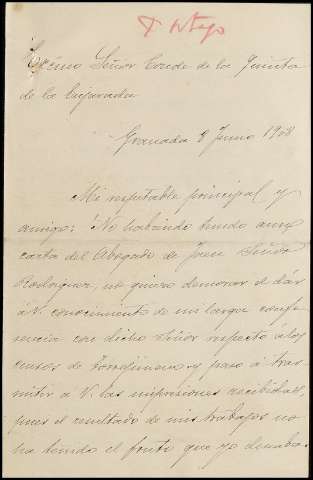 Excmo Señor Conde de la Quinta
de la Enjarada
Granada 8 Junio 1908
Mi respetable principal y
amigo: No habiendo tenido aun
carta del Abogado de Juan
Rodriguez, no quiero demorar el dár
á V. conocimiento de mi larga confe
rencia con dicho Señor respecto á los
censos de Torredjimeno y paso á tras
mitir á V. las impresiones recibidas,
pues el resultado de mis trabajos no
ha tenido el fruto que yo deseaba